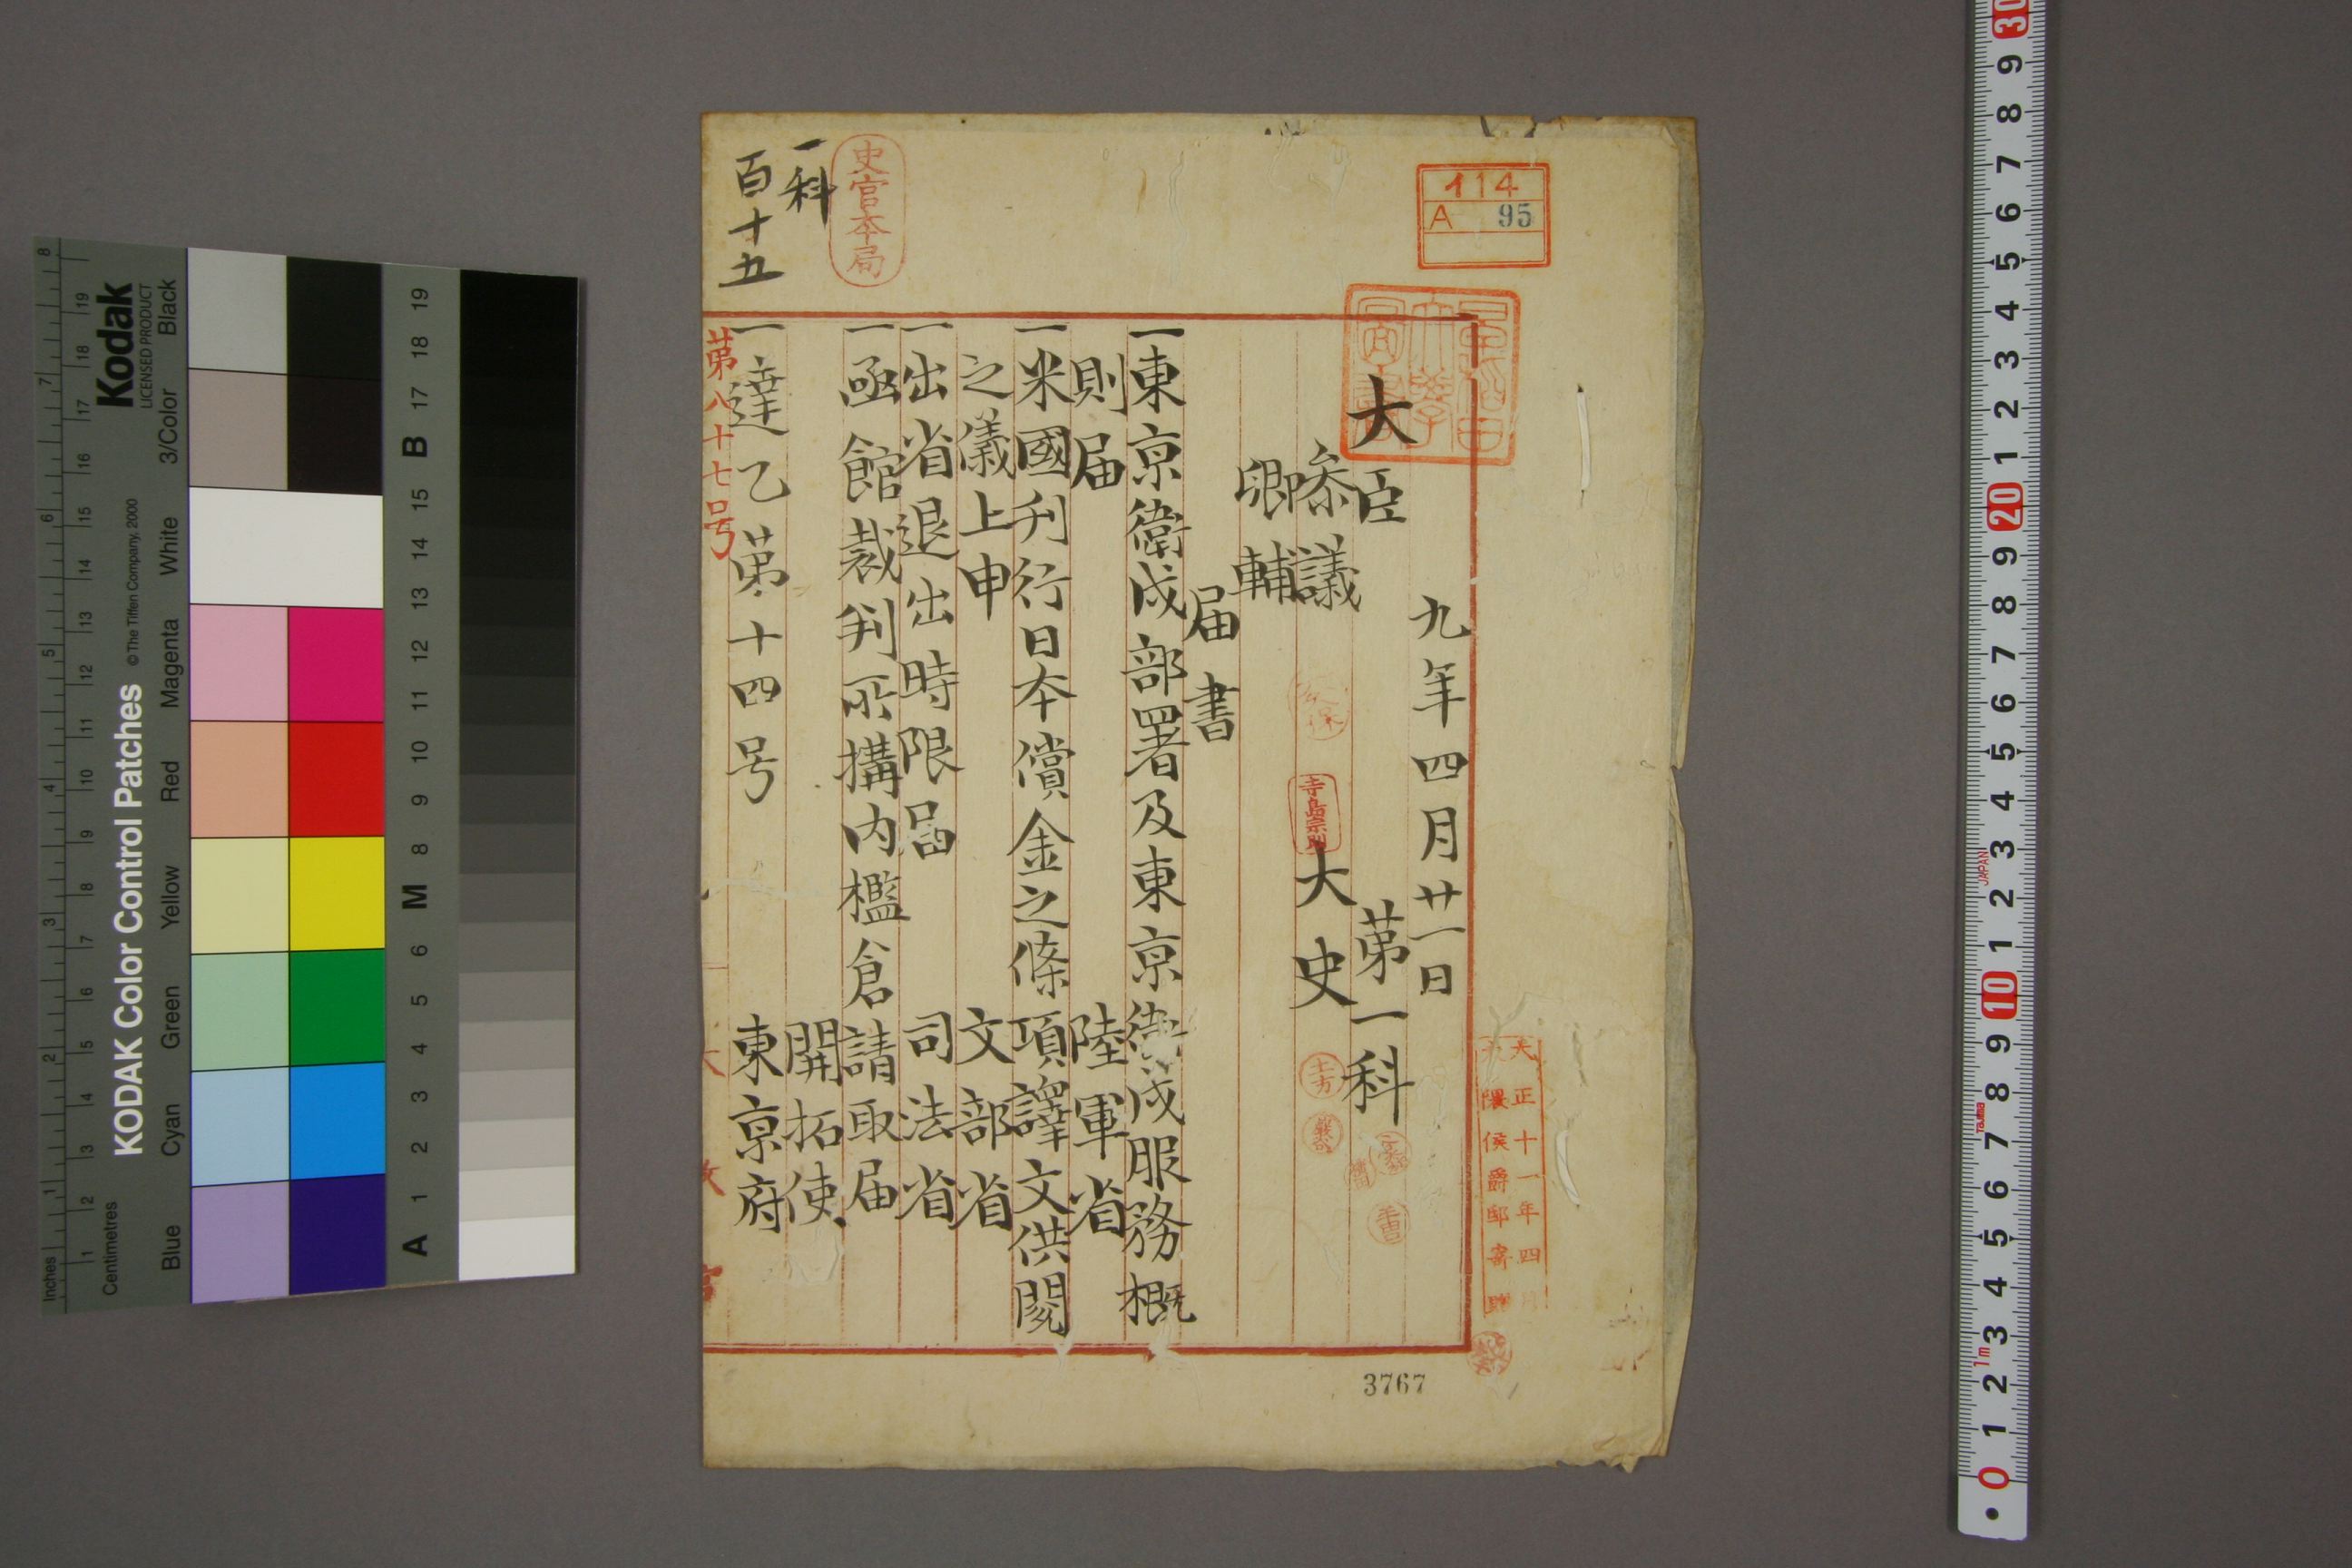 114
A 95
九年四月廿一日
第一科
大臣
大史
參議
卿輔
寺島宗則
土方
届書
一東京衞戍部署及東京衞戍服務概
則届 陸軍省
一米國刋行日本償金之條項譯文供閲
之儀上申 文部省
一出省退出時限届 司法省
一函館裁判所搆内檻倉請取届
開拓使
一達乙第十四号 東京府
第八十七号
史官本局
一科
百十五
大正十一年四月
大隈侯爵邸寄贈
3767
KODAK Color Control Patches
© The Tiffen Company, 2000
Kodak
LICENSED PRODUCT
Inches
Centimetres
Blue Cyan Green Yellow Red Magenta White 3/Color Black
1 2 3 4 5 6 7 8
1 2 3 4 5 6 7 8 9 10 11 12 13 14 15 16 17 18 19
A 1 2 3 4 5 6 M 8 9 10 11 12 13 14 15 B 17 18 19
0 1 2 3 4 5 6 7 8 9 10 1 2 3 4 5 6 7 8 9 20 1 2 3 4 5 6 7 8 9 30
1m
Tajima
JAPAN